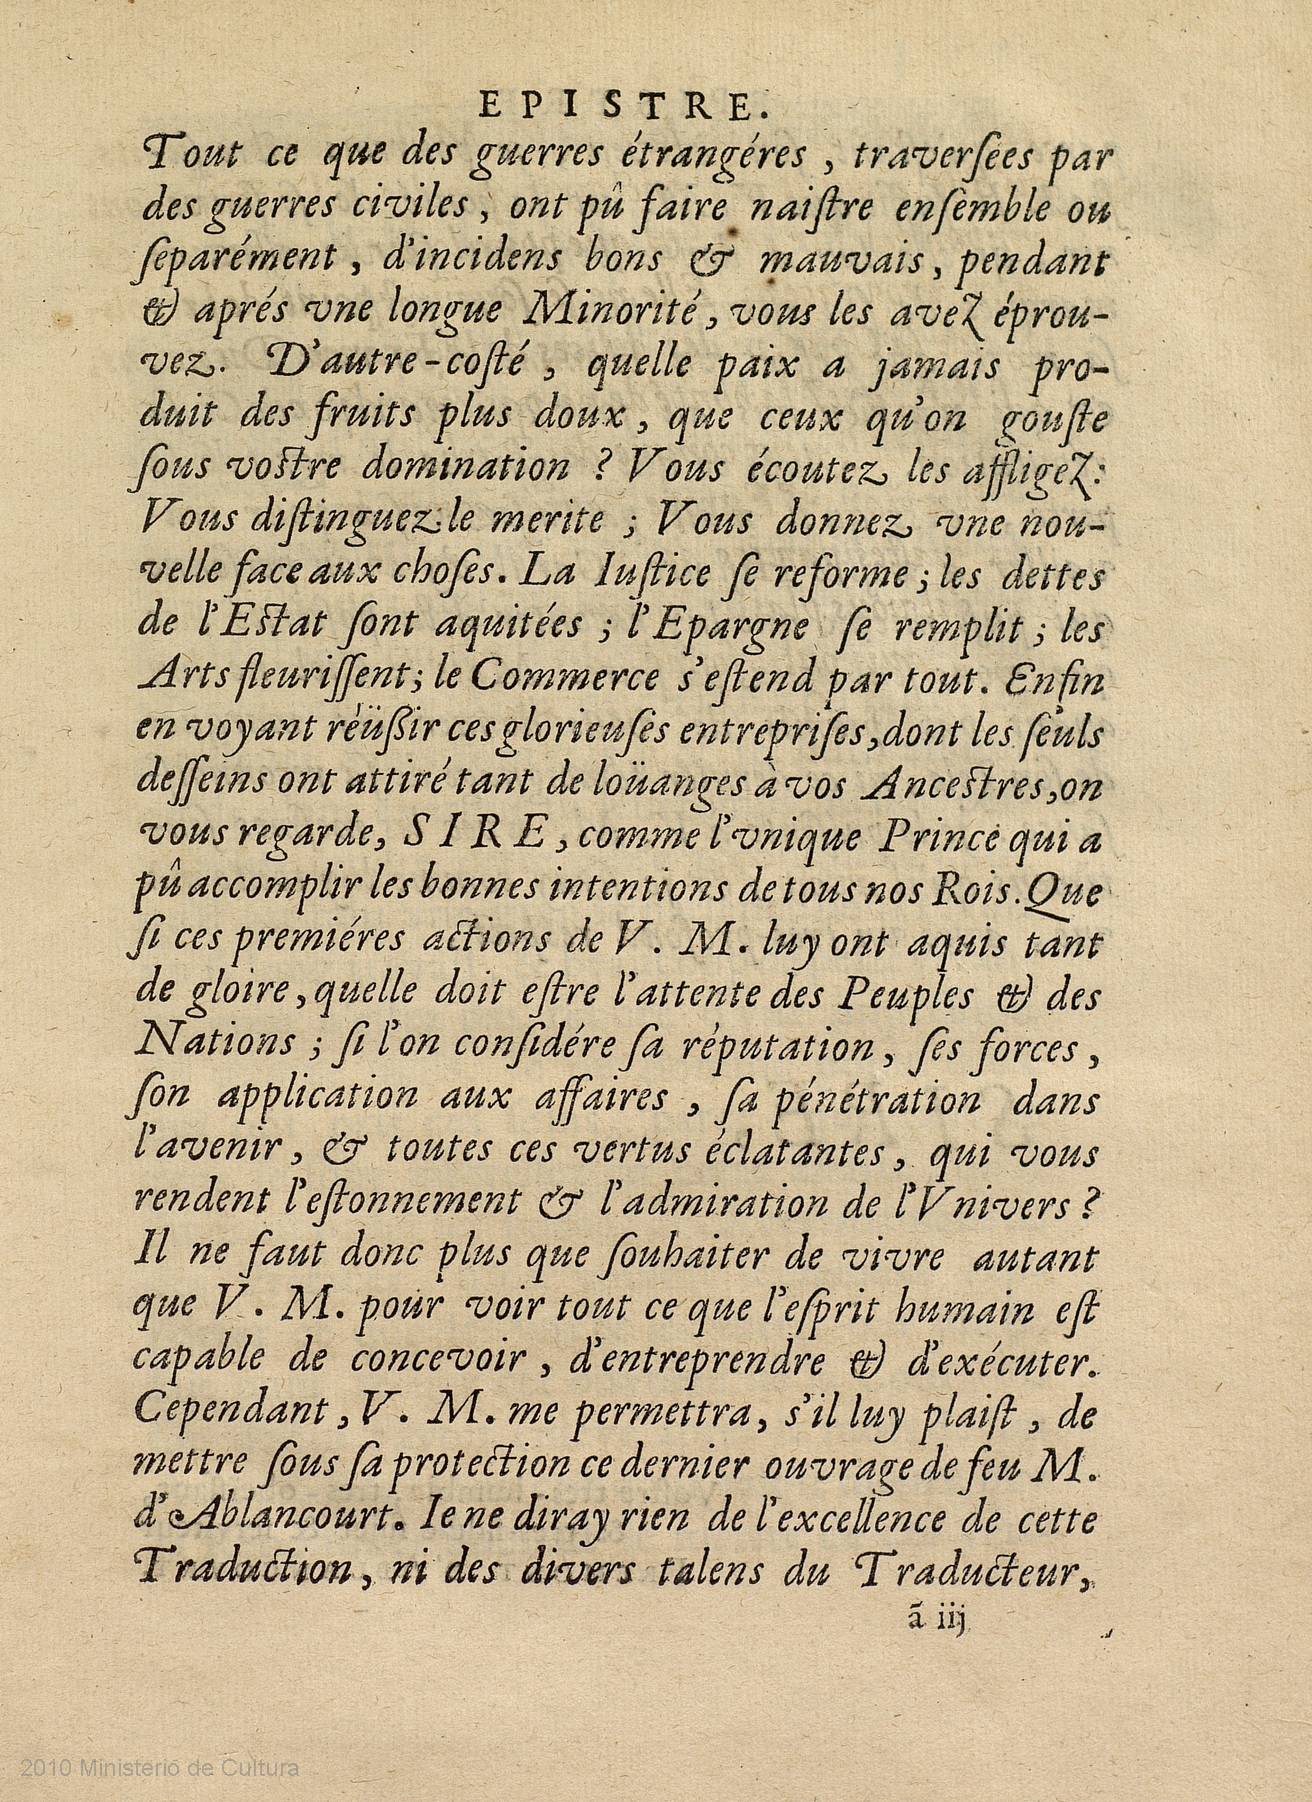 EPISTRE.
Tout ce que des guerres étrangéres, traverſées par
des guerres civiles, ont pû faire naiſtre enſemble ou
ſeparément, d'incidens bons & mauvais, pendant
& aprés vne longue Minorité, vous les avez éprou-
vez. D'autre-coſté, quelle paix a jamais pro-
duit des fruits plus doux, que ceux qu'on gouſte
ſous voſtre domination ? Vous écoutez les affligez:
Vous diſtinguez le merite ; Vous donnez vne nou-
velle face aux choſes. La Iuſtice ſe reforme ; les dettes
de l'Eſtat ſont aquitées ; l'Epargne ſe remplit ; les
Arts fleuriſſent ; le Commerce s'eſtend par tout. Enfin
en voyant réüßir ces glorieuſes entrepriſes, dont les ſeuls
deſſeins ont attiré tant de loüanges à vos Anceſtres, on
vous regarde, SIRE, comme l'vnique Prince qui a
pû accomplir les bonnes intentions de tous nos Rois. Que
ſi ces premiéres actions de V. M. luy ont aquis tant
de gloire, quelle doit eſtre l'attente des Peuples & des
Nations ; ſi l'on conſidére ſa réputation, ſes forces,
ſon application aux affaires, ſa pénétration dans
l'avenir, & toutes ces vertus éclatantes, qui vous
rendent l'eſtonnement & l'admiration de l'Vnivers ?
Il ne faut donc plus que ſouhaiter de vivre autant
que V. M. pour voir tout ce que l'eſprit humain eſt
capable de concevoir, d'entreprendre & d'exécuter.
Cependant, V. M. me permettra, s'il luy plaiſt, de
mettre ſous ſa protection ce dernier ouvrage de feu M.
d'Ablancourt. Ie ne diray rien de l'excellence de cette
Traduction, ni des divers talens du Traducteur,
ã iij
2010 Ministerio de Cultura